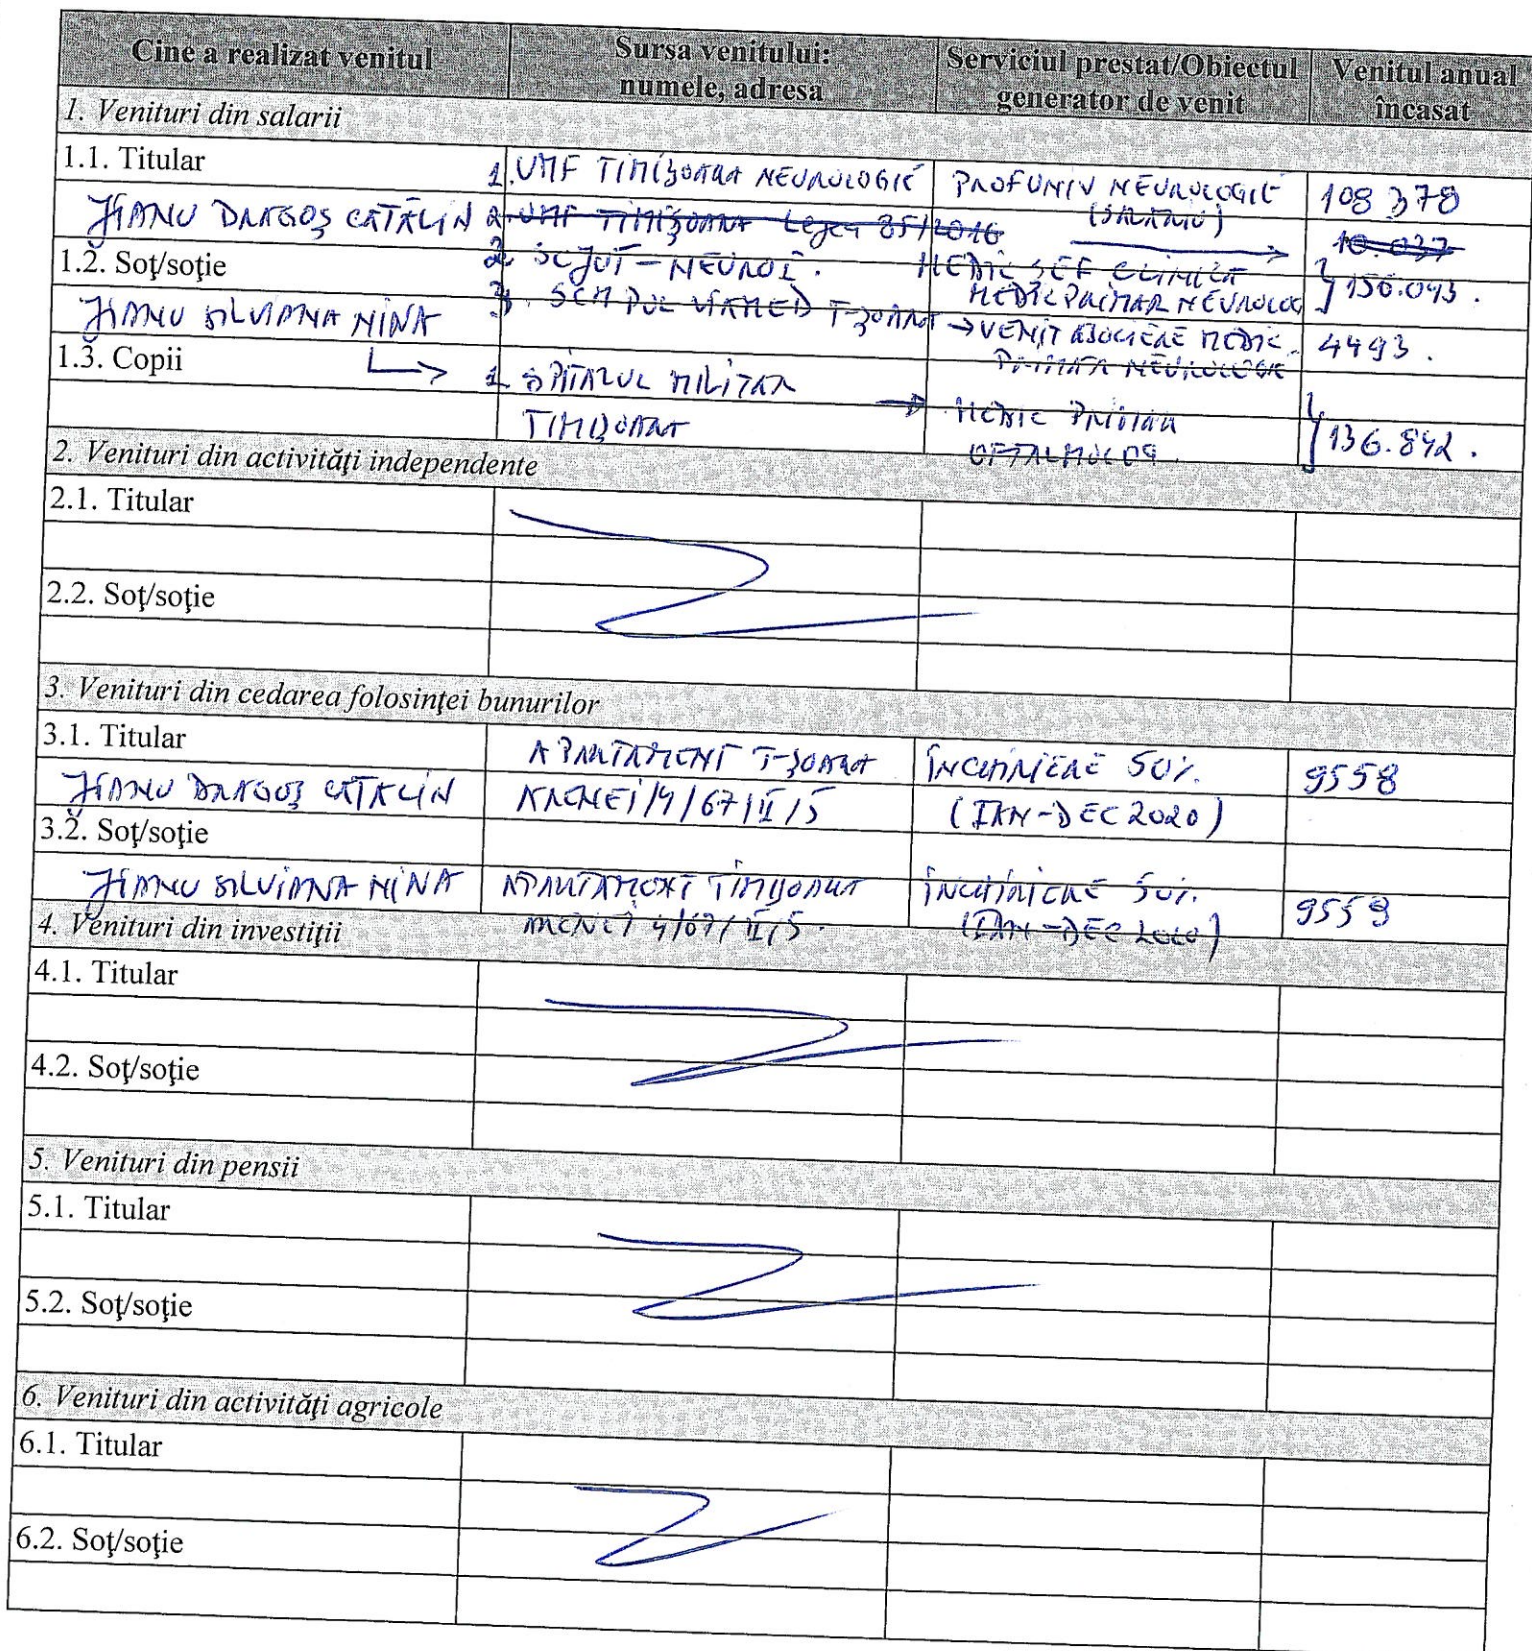 Cine a realizat venitul
Sursa venitului:
numele, adresa
Serviciul prestat/Obiectul
generator de venit
Venitul anual
încasat
1. Venituri din salarii
1.1. Titular
1. UMF TIMIȘOARA NEUROLOGIE
PROF UNIV NEUROLOGIE
(SALARIU)
108 378
JIANU DRAGOȘ CĂTĂLIN
2. UMF TIMIȘOARA Legea 85/2016
10.037
1.2. Soţ/soţie
2. SCJUT - NEURO I.
MEDIC ȘEF CLINICĂ
MEDIC PRIMAR NEUROLOG
JIANU SILVIANA NINA
3. SCM POL T-ȘOARA
→ VENIT ASOCIERE MEDIC
PRIMAR NEUROLOGIE
4493.
1.3. Copii
1. SPITALUL MILITAR
TIMIȘOARA
MEDIC PRIMAR
OFTALMOLOG.
136.842.
2. Venituri din activităţi independente
2.1. Titular
2.2. Soţ/soţie
3. Venituri din cedarea folosinţei bunurilor
3.1. Titular
APARTAMENT T-ȘOARA
ÎNCHIRIERE 50%
9558
JIANU DRAGOȘ CĂTĂLIN
/4/67/II/5
(IAN-DEC 2020)
3.2. Soţ/soţie
JIANU SILVIANA NINA
APARTAMENT TIMIȘOARA
ÎNCHIRIERE 50%.
4/67/II/5.
(IAN-DEC 2020)
4. Venituri din investiţii
4.1. Titular
4.2. Soţ/soţie
5. Venituri din pensii
5.1. Titular
5.2. Soţ/soţie
6. Venituri din activităţi agricole
6.1. Titular
6.2. Soţ/soţie